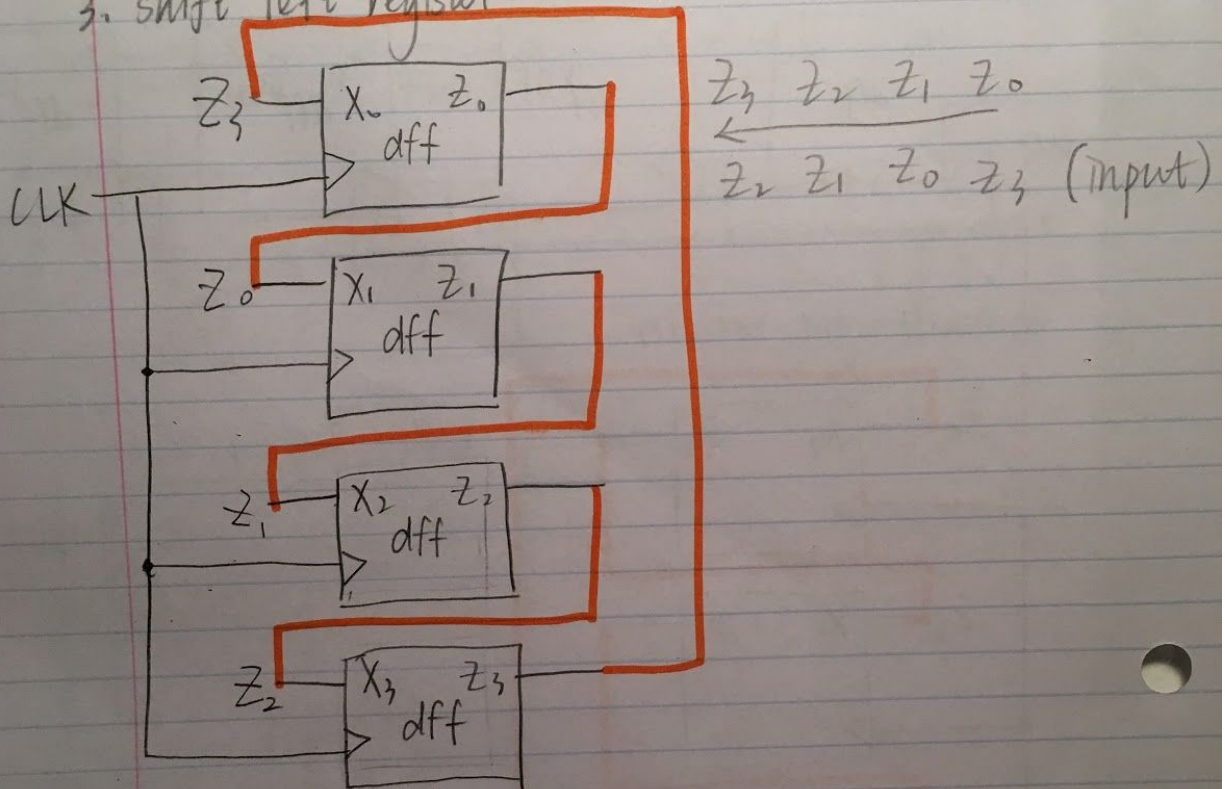 3. shift left register
Z₃ X₀ Z₀ Z₃ Z₂ Z₁ Z₀
dff
CLK Z₂ Z₁ Z₀ Z₃ (input)
Z₀ X₁ Z₁
dff
Z₁ X₂ Z₂
dff
Z₂ X₃ Z₃
dff